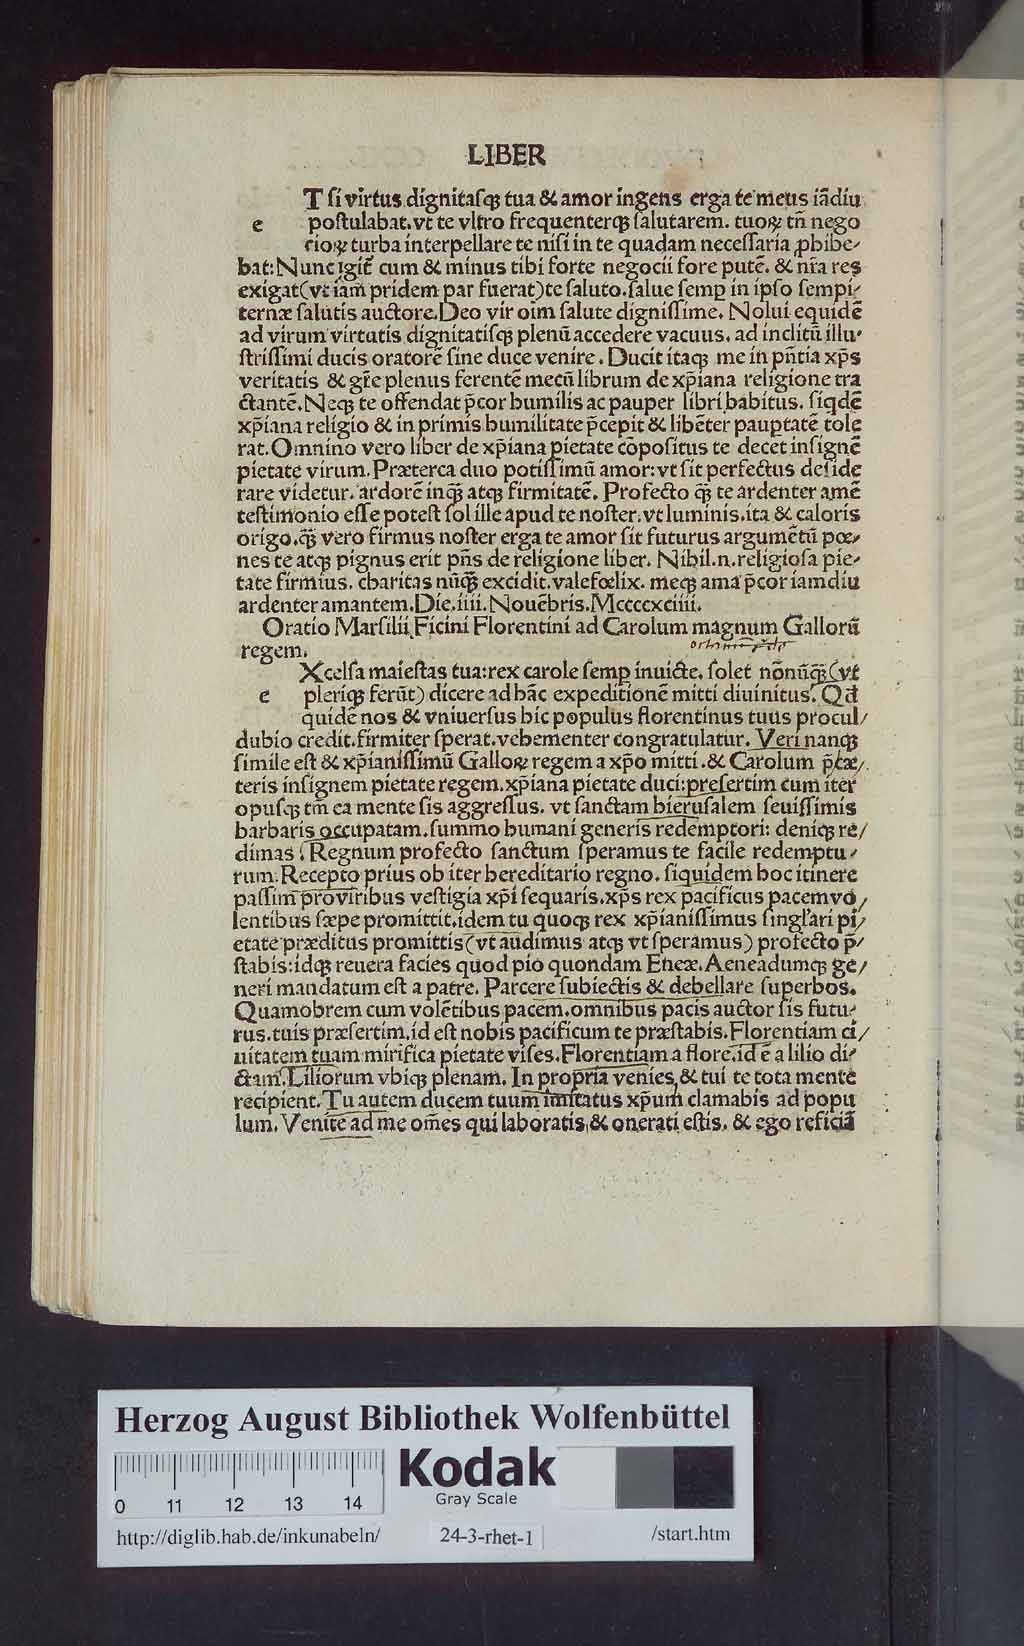 LIBER
T ſi virtus dignitaſqꝫ tua & amor ingens erga te meus iādiu
e poſtulabat. vt te vltro frequenterqꝫ ſalutarem. tuoꝝ tñ nego
cioꝝ turba interpellare te niſi in te quadam neceſſaria ꝓhibe⸗
bat: Nunc igit̃ cum & minus tibi forte negocii fore putē. & nr̄a res
exigat (vt iam pridem par fuerat) te ſaluto. ſalue ſemꝑ in ipſo ſempi⸗
ternæ ſalutis auctore. Deo vir oim ſalute digniſſime. Nolui equidē
ad virum virtutis dignitatiſqꝫ plenū accedere vacuus. ad inclitū illu⸗
ſtriſſimi ducis oratorē ſine duce venire. Ducit itaqꝫ me in pn̄tia xp̄s
veritatis & gr̄e plenus ferentē mecū librum de xp̄iana religione tra
ctantē. Neqꝫ te offendat p̄cor humilis ac pauper libri habitus. ſiqdē
xp̄iana religio & in primis humilitatē p̄cepit & libēter pauꝑtatē tole
rat. Omnino vero liber de xp̄iana pietate cōpoſitus te decet inſignē
pietate virum. Præterea duo potiſſimū amor: vt ſit perfectus deſide
rare videtur. ardorē inqꝫ̄ atqꝫ firmitatē. Profecto qꝫ̄ te ardenter amē
teſtimonio eſſe poteſt ſol ille apud te noſter. vt luminis. ita & caloris
origo. qꝫ̄ vero firmus noſter erga te amor ſit futurus argumētū pœ⸗
nes te atqꝫ pignus erit pn̄s de religione liber. Nihil. n. religioſa pie⸗
tate firmius. charitas nūqꝫ̄ excidit. vale fœlix. meqꝫ ama p̄cor iamdiu
ardenter amantem. Die. iiii. Nouēbris. Mccccxciiii.
Oratio Marſilii Ficini Florentini ad Carolum magnum Gallorū
regem.
Xcelſa maieſtas tua: rex carole ſemꝑ inuicte. ſolet nōnūqꝫ̄ (vt
e pleriqꝫ ferūt) dicere ad hāc expeditionē mitti diuinitus. Qđ
quidē nos & vniuerſus hic populus florentinus tuus procul/
dubio credit. firmiter ſperat. vehementer congratulatur. Veri nanqꝫ
ſimile eſt & xp̄ianiſſimū Galloꝝ regem a xp̄o mitti. & Carolum p̄tæ/
teris inſignem pietate regem. xp̄iana pietate duci: preſertim cum iter
opuſqꝫ tm̄ ea mente ſis aggreſſus. vt ſanctam hieruſalem ſeuiſſimis
barbaris occupatam. ſummo humani generis redemptori: deniqꝫ re/
dimas. Regnum profecto ſanctum ſperamus te facile redemptu⸗
rum. Recepto prius ob iter hereditario regno. ſiquidem hoc itinere
paſſim pro viribus veſtigia xp̄i ſequaris. xp̄s rex pacificus pacem vo/
lentibus ſæpe promittit. idem tu quoqꝫ rex xp̄ianiſſimus ſingl'ari pi/
etate præditus promittis (vt audimus atqꝫ vt ſperamus) profecto p̄⸗
ſtabis: idqꝫ reuera facies quod pio quondam Eneæ. Aeneadumqꝫ ge/
neri mandatum eſt a patre. Parcere ſubiectis & debellare ſuperbos.
Quamobrem cum volētibus pacem. omnibus pacis auctor ſis futu⸗
rus. tuis præſertim. id eſt nobis pacificum te præſtabis. Florentiam ci/
uitatem tuam mirifica pietate viſes. Florentiam a flore. id ē a lilio di⸗
ctam. Liliorum vbiqꝫ plenam. In propria venies, & tui te tota mente
recipient. Tu autem ducem tuum imitatus xp̄um clamabis ad popu
lum. Venite ad me om̄es qui laboratis & onerati eſtis. & ego reficiā
Herzog August Bibliothek Wolfenbüttel
0 11 12 13 14
Kodak
Gray Scale
http://diglib.hab.de/inkunabeln/ 24-3-rhet-1 /start.htm